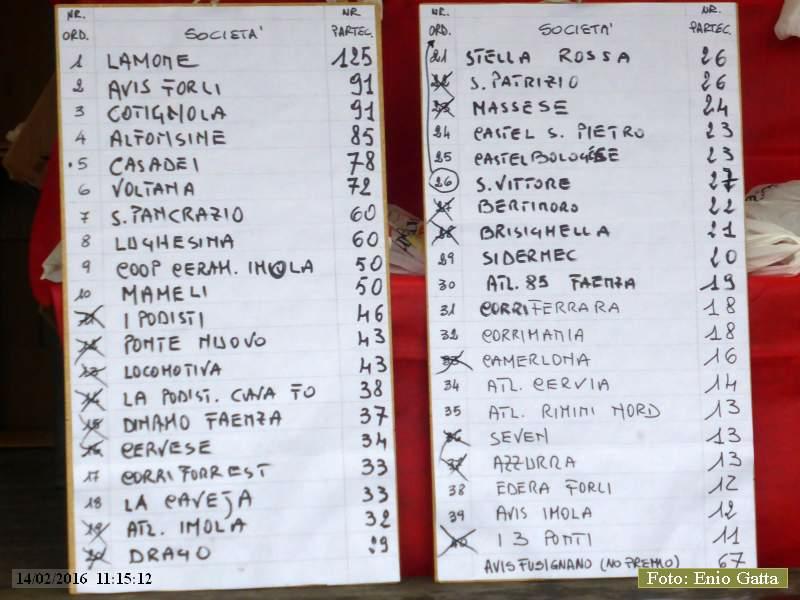 NR. ORD. SOCIETA' NR. PARTEC.
1 LAMONE 125
2 AVIS FORLI 91
3 COTIGNOLA 91
4 ALFONSINE 85
5 CASADEI 78
6 VOLTANA 72
7 S. PANCRAZIO 60
8 LUGHESINA 60
9 COOP CERAM. IMOLA 50
10 MAMELI 50
11 I PODISTI 46
12 PONTE NUOVO 43
13 LOCOMOTIVA 43
14 LA PODIST. CAVA FO 38
15 DINAMO FAENZA 37
16 CERVESE 34
17 CORRI FORREST 33
18 LA CAVEJA 33
19 ATL. IMOLA 32
20 DRAGO 29
NR. ORD. SOCIETA' NR. PARTEC.
21 STELLA ROSSA 26
22 S. PATRIZIO 26
23 MASSESE 24
24 CASTEL S. PIETRO 23
25 CASTELBOLOGNESE 23
26 S. VITTORE 27
27 BERTINORO 22
28 BRISIGHELLA 21
29 SIDERMEC 20
30 ATL. 85 FAENZA 19
31 CORRIFERRARA 18
32 CORRIMANIA 18
33 CAMERLONA 16
34 ATL. CERVIA 14
35 ATL. RIMINI NORD 13
36 SEVEN 13
37 AZZURRA 13
38 EDERA FORLI 12
39 AVIS IMOLA 12
40 I 3 PONTI 11
AVIS FUSIGNANO (NO PREMIO) 67
14/02/2016 11:15:12
Foto: Enio Gatta